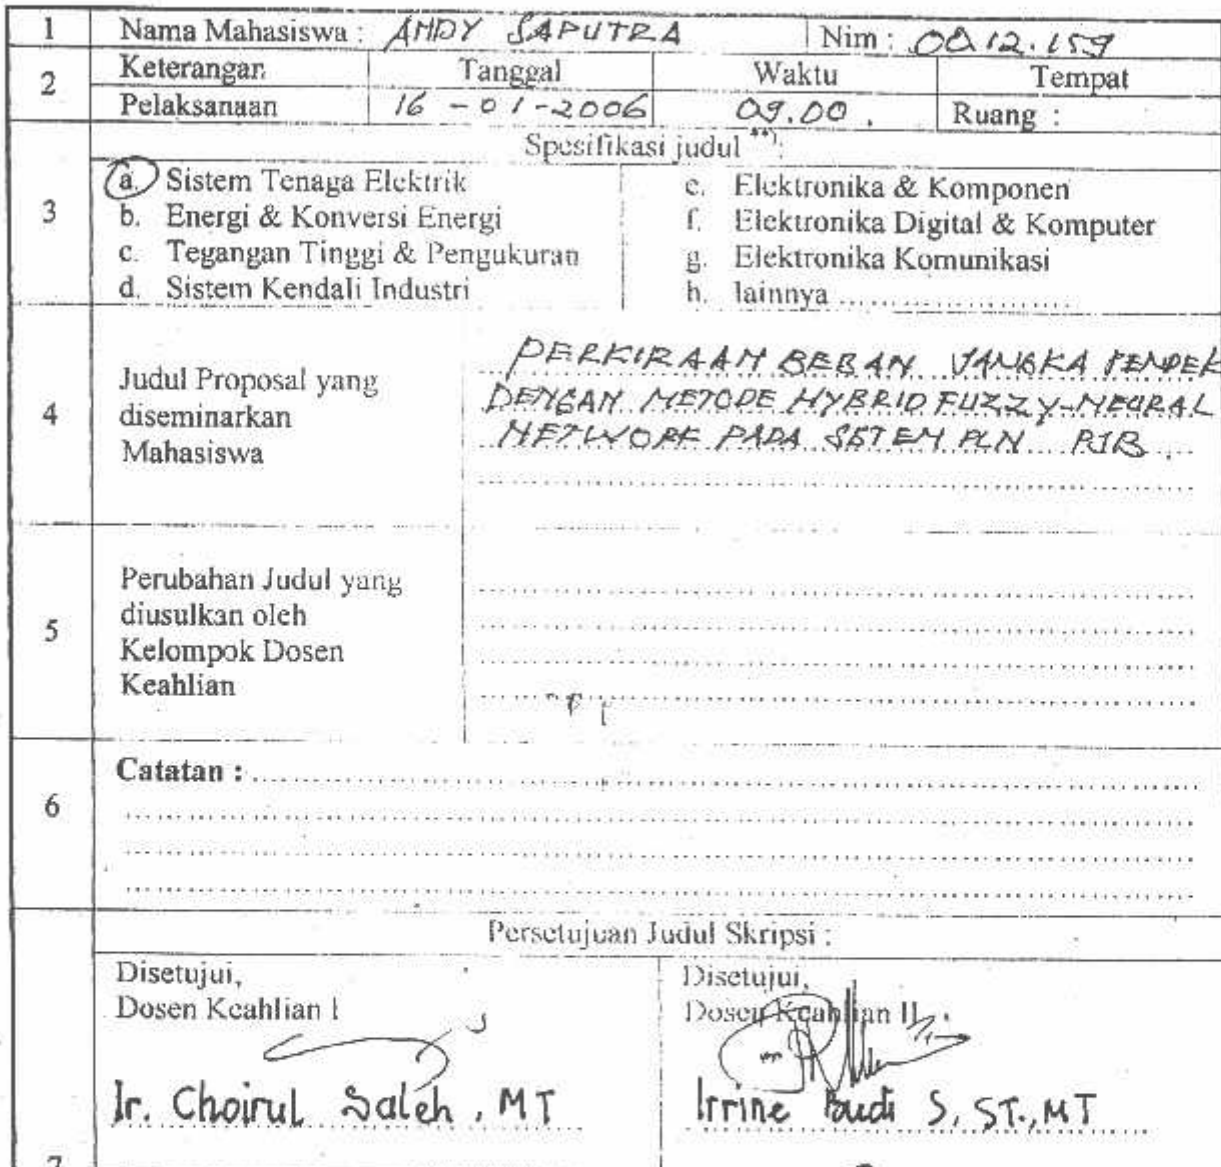 1 Nama Mahasiswa : ANDY SAPUTRA Nim : 0012.159
2 Keterangan Tanggal Waktu Tempat
Pelaksanaan 16 - 01 - 2006 09.00 . Ruang :
Spesifikasi judul **):
3
a. Sistem Tenaga Elektrik
b. Energi & Konversi Energi
c. Tegangan Tinggi & Pengukuran
d. Sistem Kendali Industri
e. Elektronika & Komponen
f. Elektronika Digital & Komputer
g. Elektronika Komunikasi
h. lainnya ......................
4
Judul Proposal yang
diseminarkan
Mahasiswa
PERKIRAAN BEBAN JANGKA PENDEK
DENGAN METODE HYBRID FUZZY-NEURAL
NETWORK PADA SISTEM PLN PJB .
5
Perubahan Judul yang
diusulkan oleh
Kelompok Dosen
Keahlian
6
Catatan :
Persetujuan Judul Skripsi :
Disetujui,
Dosen Keahlian I
Ir. Choirul Saleh, MT
Disetujui,
Dosen Keahlian II
Irrine Budi S, ST., MT
7